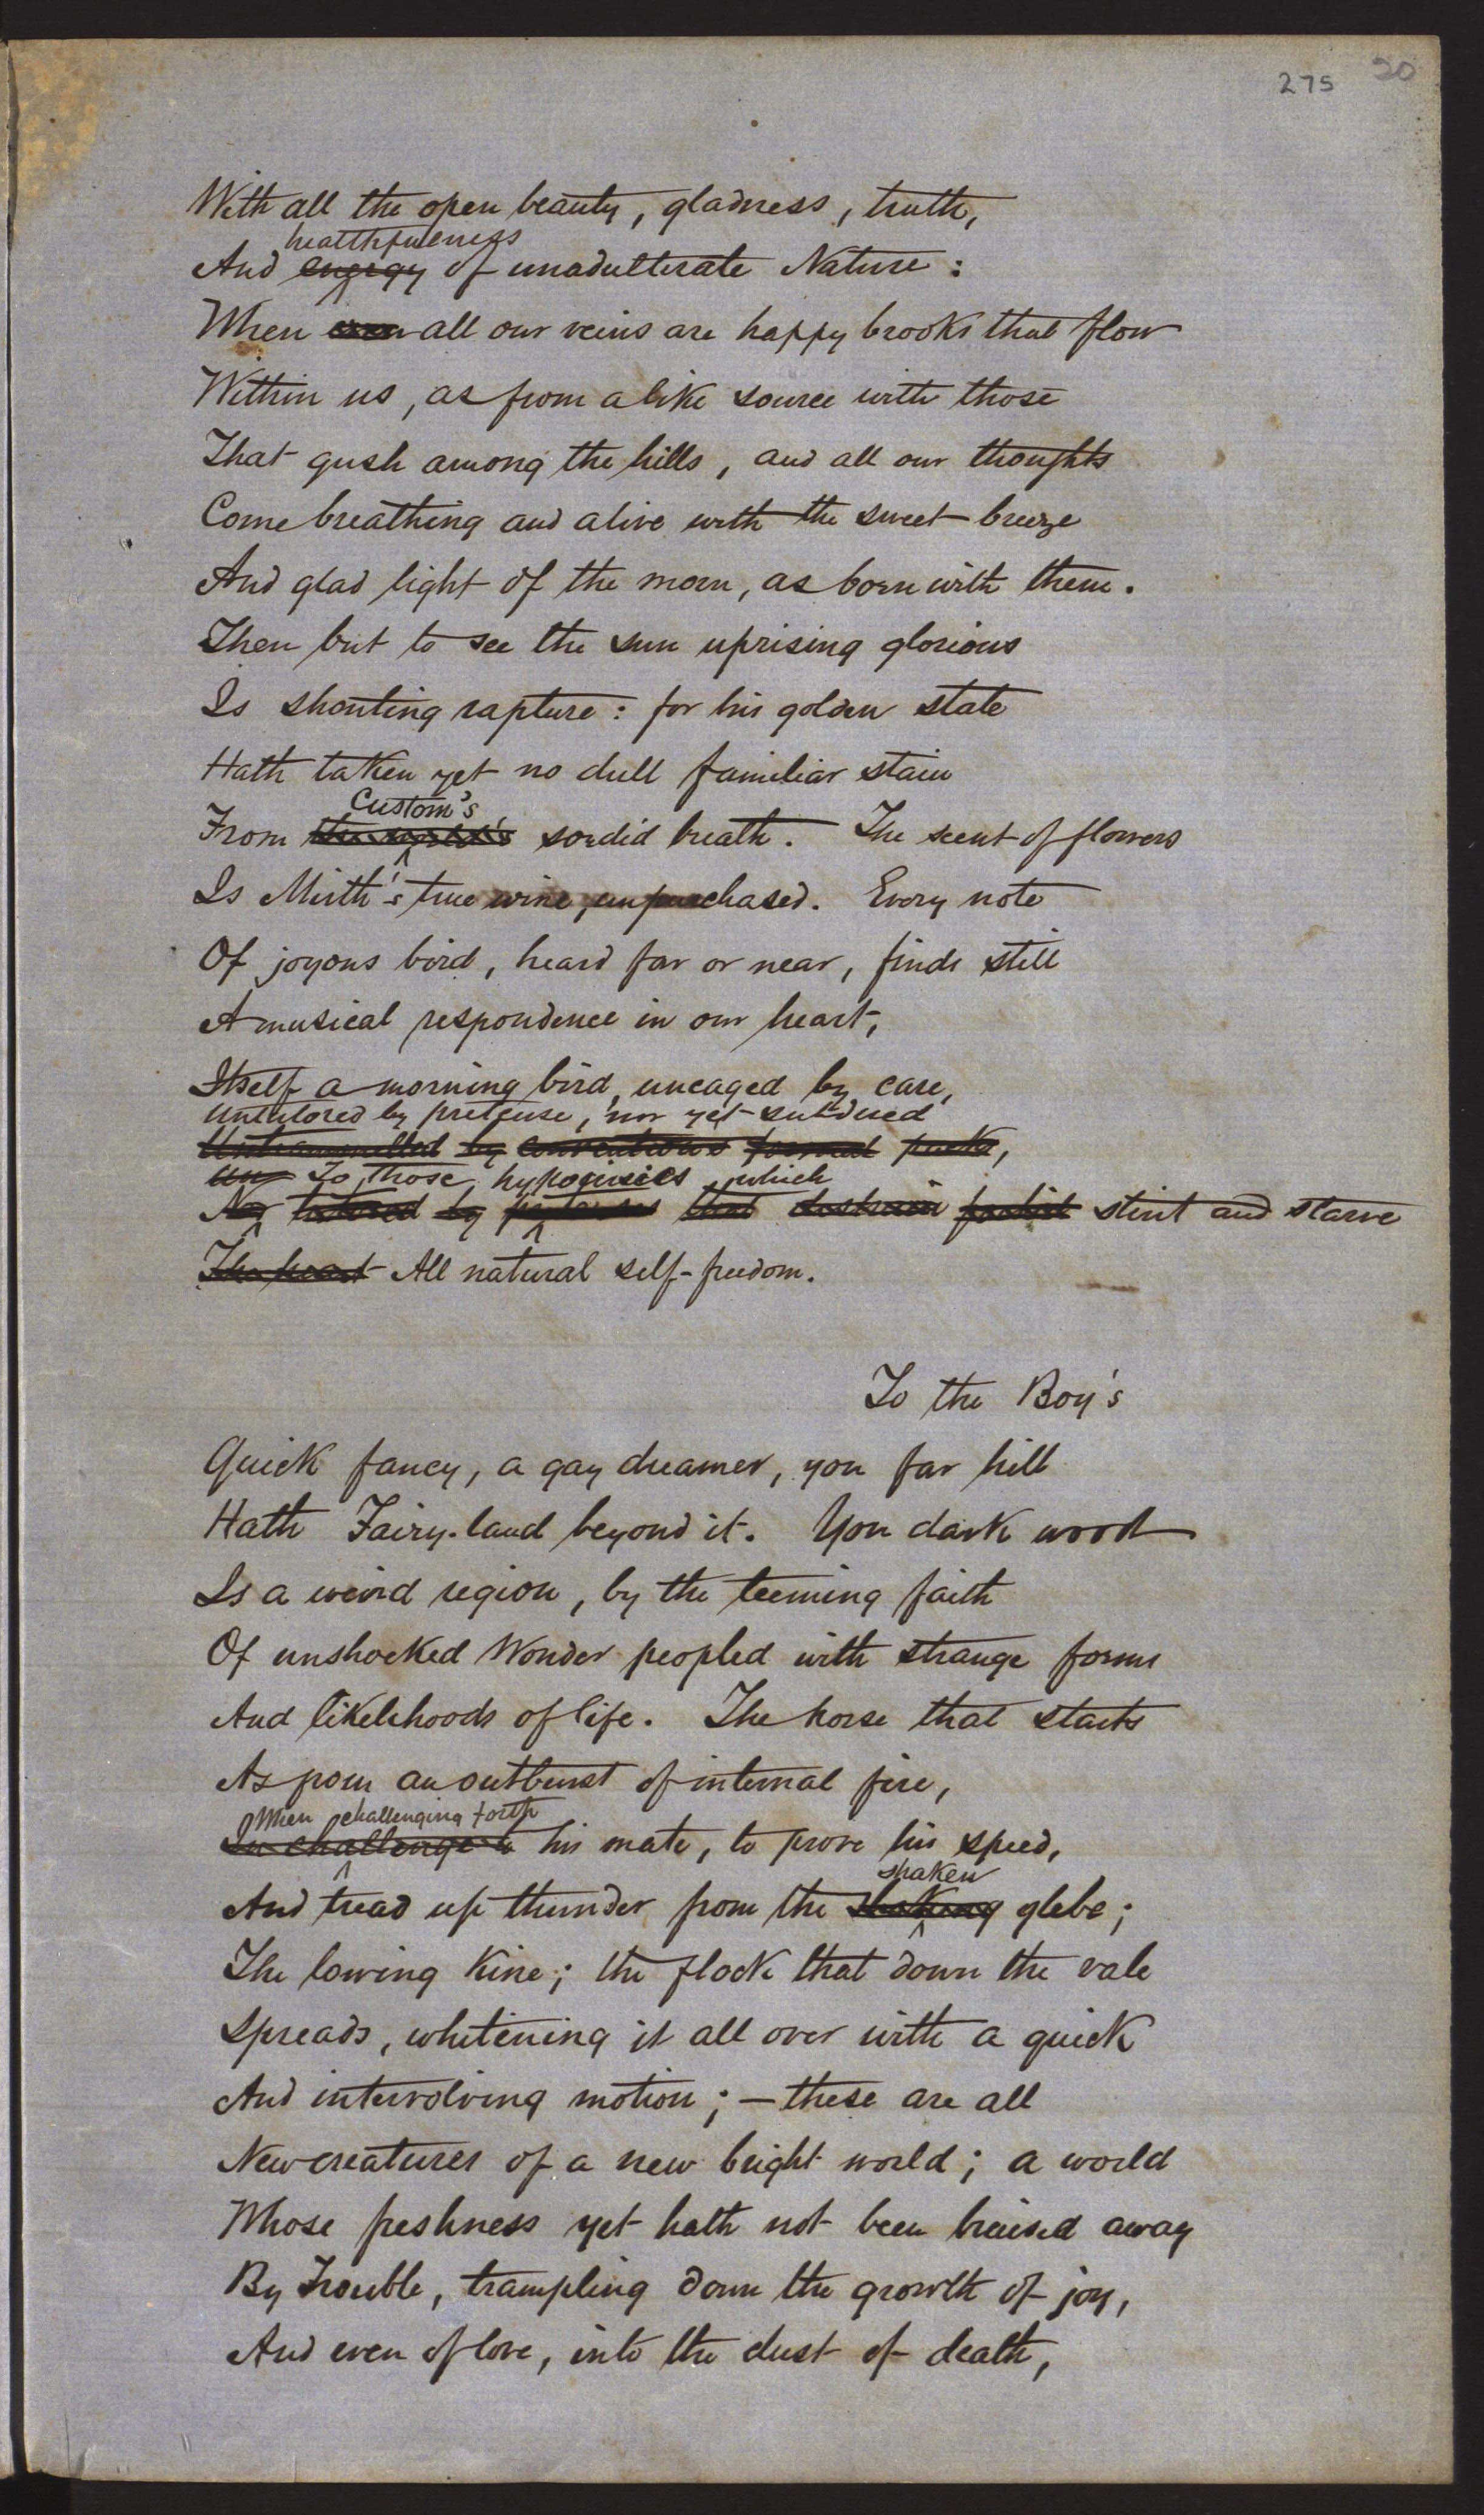 275 20
With all the open beauty, gladness, truth,
healthfulness
And energy of unadulterate Nature:
When even all our veins are happy brooks that flow
Within us, as from a like source with those
That gush among the hills, and all our thoughts
Come breathing and alive with the sweet breeze
And glad light of the morn, as born with them.
Then but to see the sun uprising glorious
Is shouting rapture: for his golden state
Hath taken yet no dull familiar stain
Custom's
From the world's sordid breath. The scent of flowers
Is Mirth's true wine, unpurchased. Every note
Of joyous bird, heard far or near, finds still
A musical respondence in our heart,
Itself a morning bird, uncaged by care,
untutored by pretense, nor yet subdued
Untrammelled by conventions formal
To those hypocrisies which
Nor tutored by that stint and starve
The heart All natural self-freedom.
To the Boy's
Quick fancy, a gay dreamer, yon far hill
Hath Fairy-land beyond it. Yon dark wood
Is a weird region, by the teeming faith
Of unshocked Wonder peopled with strange forms
And likelihoods of life. The horse that starts
As from an outburst of internal fire,
When challenging forth
In challenge to his mate, to prove his speed,
shaken
And tread up thunder from the shaking glebe;
The lowing kine; the flock that down the vale
Spreads, whitening it all over with a quick
And intervolving motion; — these are all
New creatures of a new bright world; a world
Whose freshness yet hath not been bruised away
By Trouble, trampling down the growth of joy,
And even of love, into the dust of death,